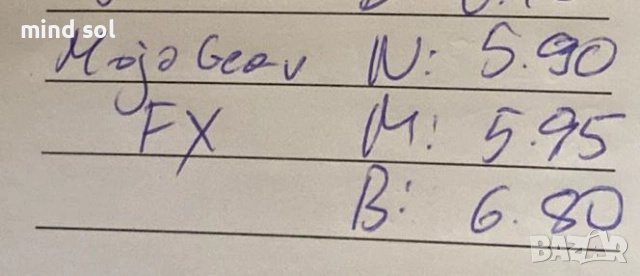 mind sol
Mojo Gear N: 5.90
FX M: 5.95
B: 6.80
BAZAR